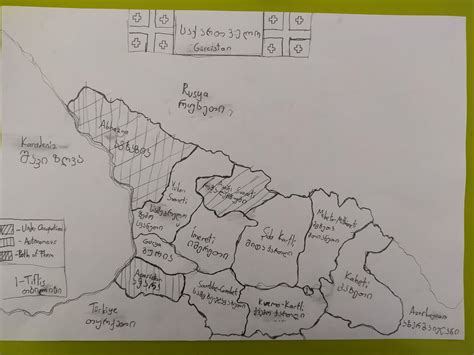 საქართველო
Gürcistan
Rusya
რუსეთი
Abhazya
აფხაზეთი
Karadeniz
შავი ზღვა
Yukarı
Svaneti
Guria
გურია
Imereti
იმერეთი
Şida Kartli
შიდა ქართლი
Mtsheta-Mtianeti
Kaheti
კახეთი
Acara
აჭარა
Samtshe-Cavaheti
Kvemo-Kartli
ქვემო ქართლი
Türkiye
თურქეთი
Azerbaycan
აზერბაიჯანი
- Under Occupation
- Autonomous
- Both of Them
1-Tiflis
თბილისი